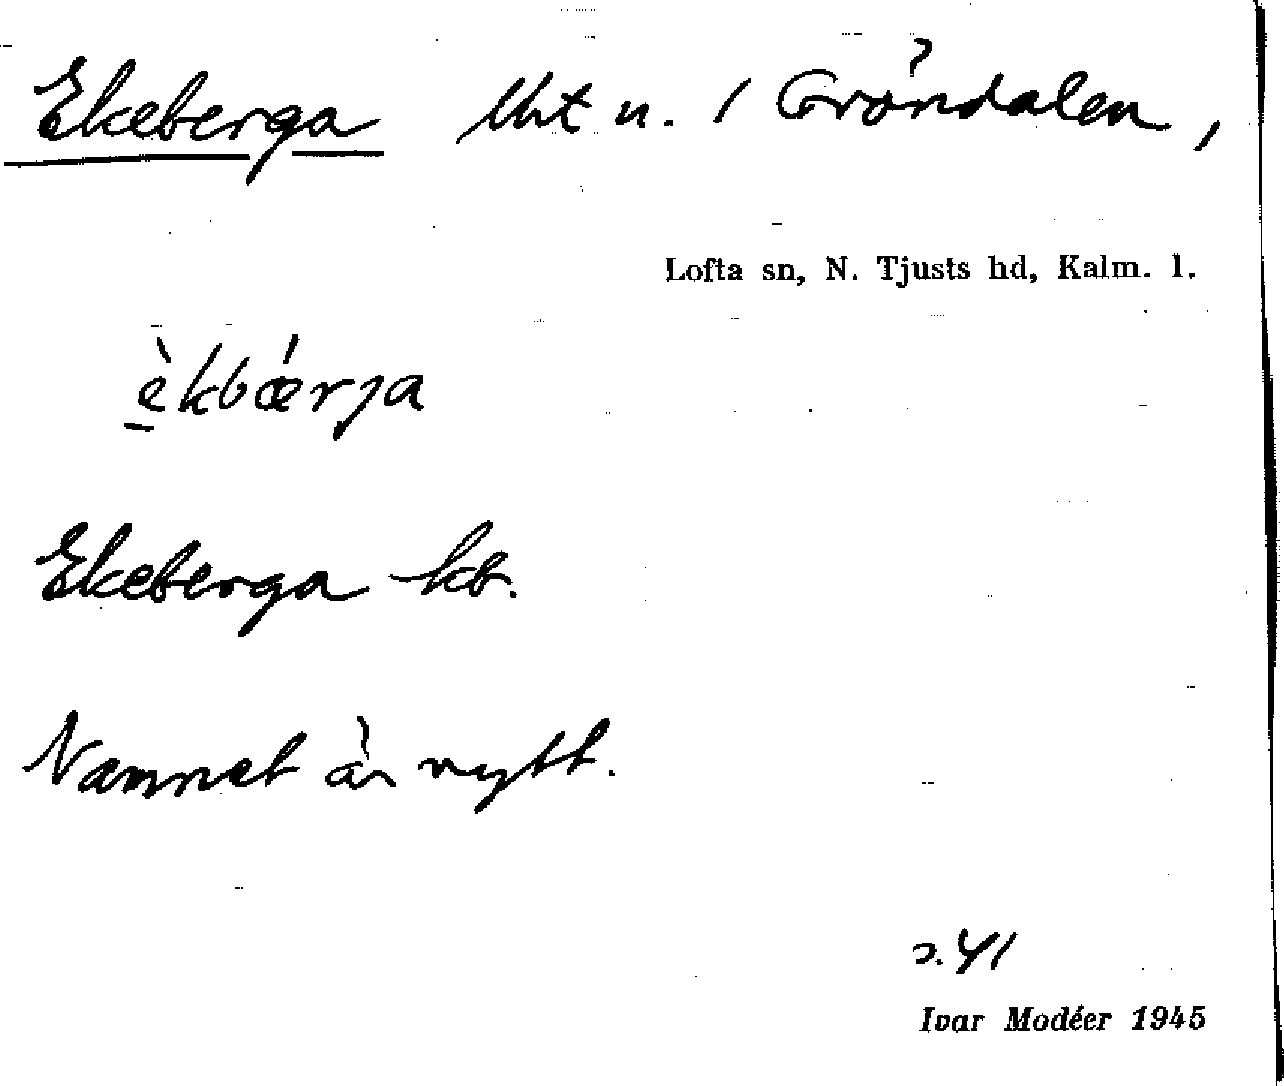 Ekeberga lht u. / Gröndalen,
Lofta sn, N. Tjusts hd, Kalm. l.
èkbǽrja
Ekeberga kb.
Namnet är nytt.
s. 41
Ivar Modéer 1945